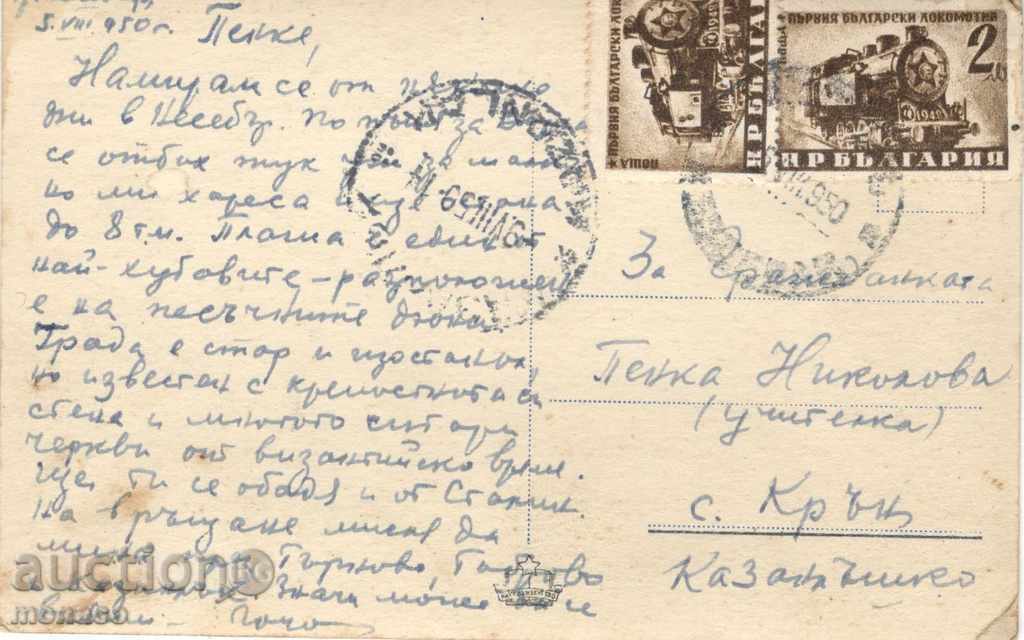 5. VIII 950 г.
Пенке,
Намирам се от
ни в Несебър. По пътя за
се отбих тук
но ми хареса и ще остана
до 8 т.м. Плажа е един от
най-хубавите – разположен
е на песъчните дюни.
Града е стар и изостанал,
но известен с крепостната си
стена и многото стари
черкви от византийско време.
Ще ти се обадя и от Сталин.
На връщане мисля да
мина през Търново, Габрово
и Значи може да се
видим – Гочо
ПЪРВИЯ БЪЛГАРСКИ ЛОКОМОТИВ
ПОЩА
НР БЪЛГАРИЯ
ПЪРВИЯ БЪЛГАРСКИ ЛОКОМОТИВ
2 ЛВ
1949
НР БЪЛГАРИЯ
VIII.950
За гражданката
Пенка Николова
(учителка)
с. Крън
Казанлъшко
auction
monaco